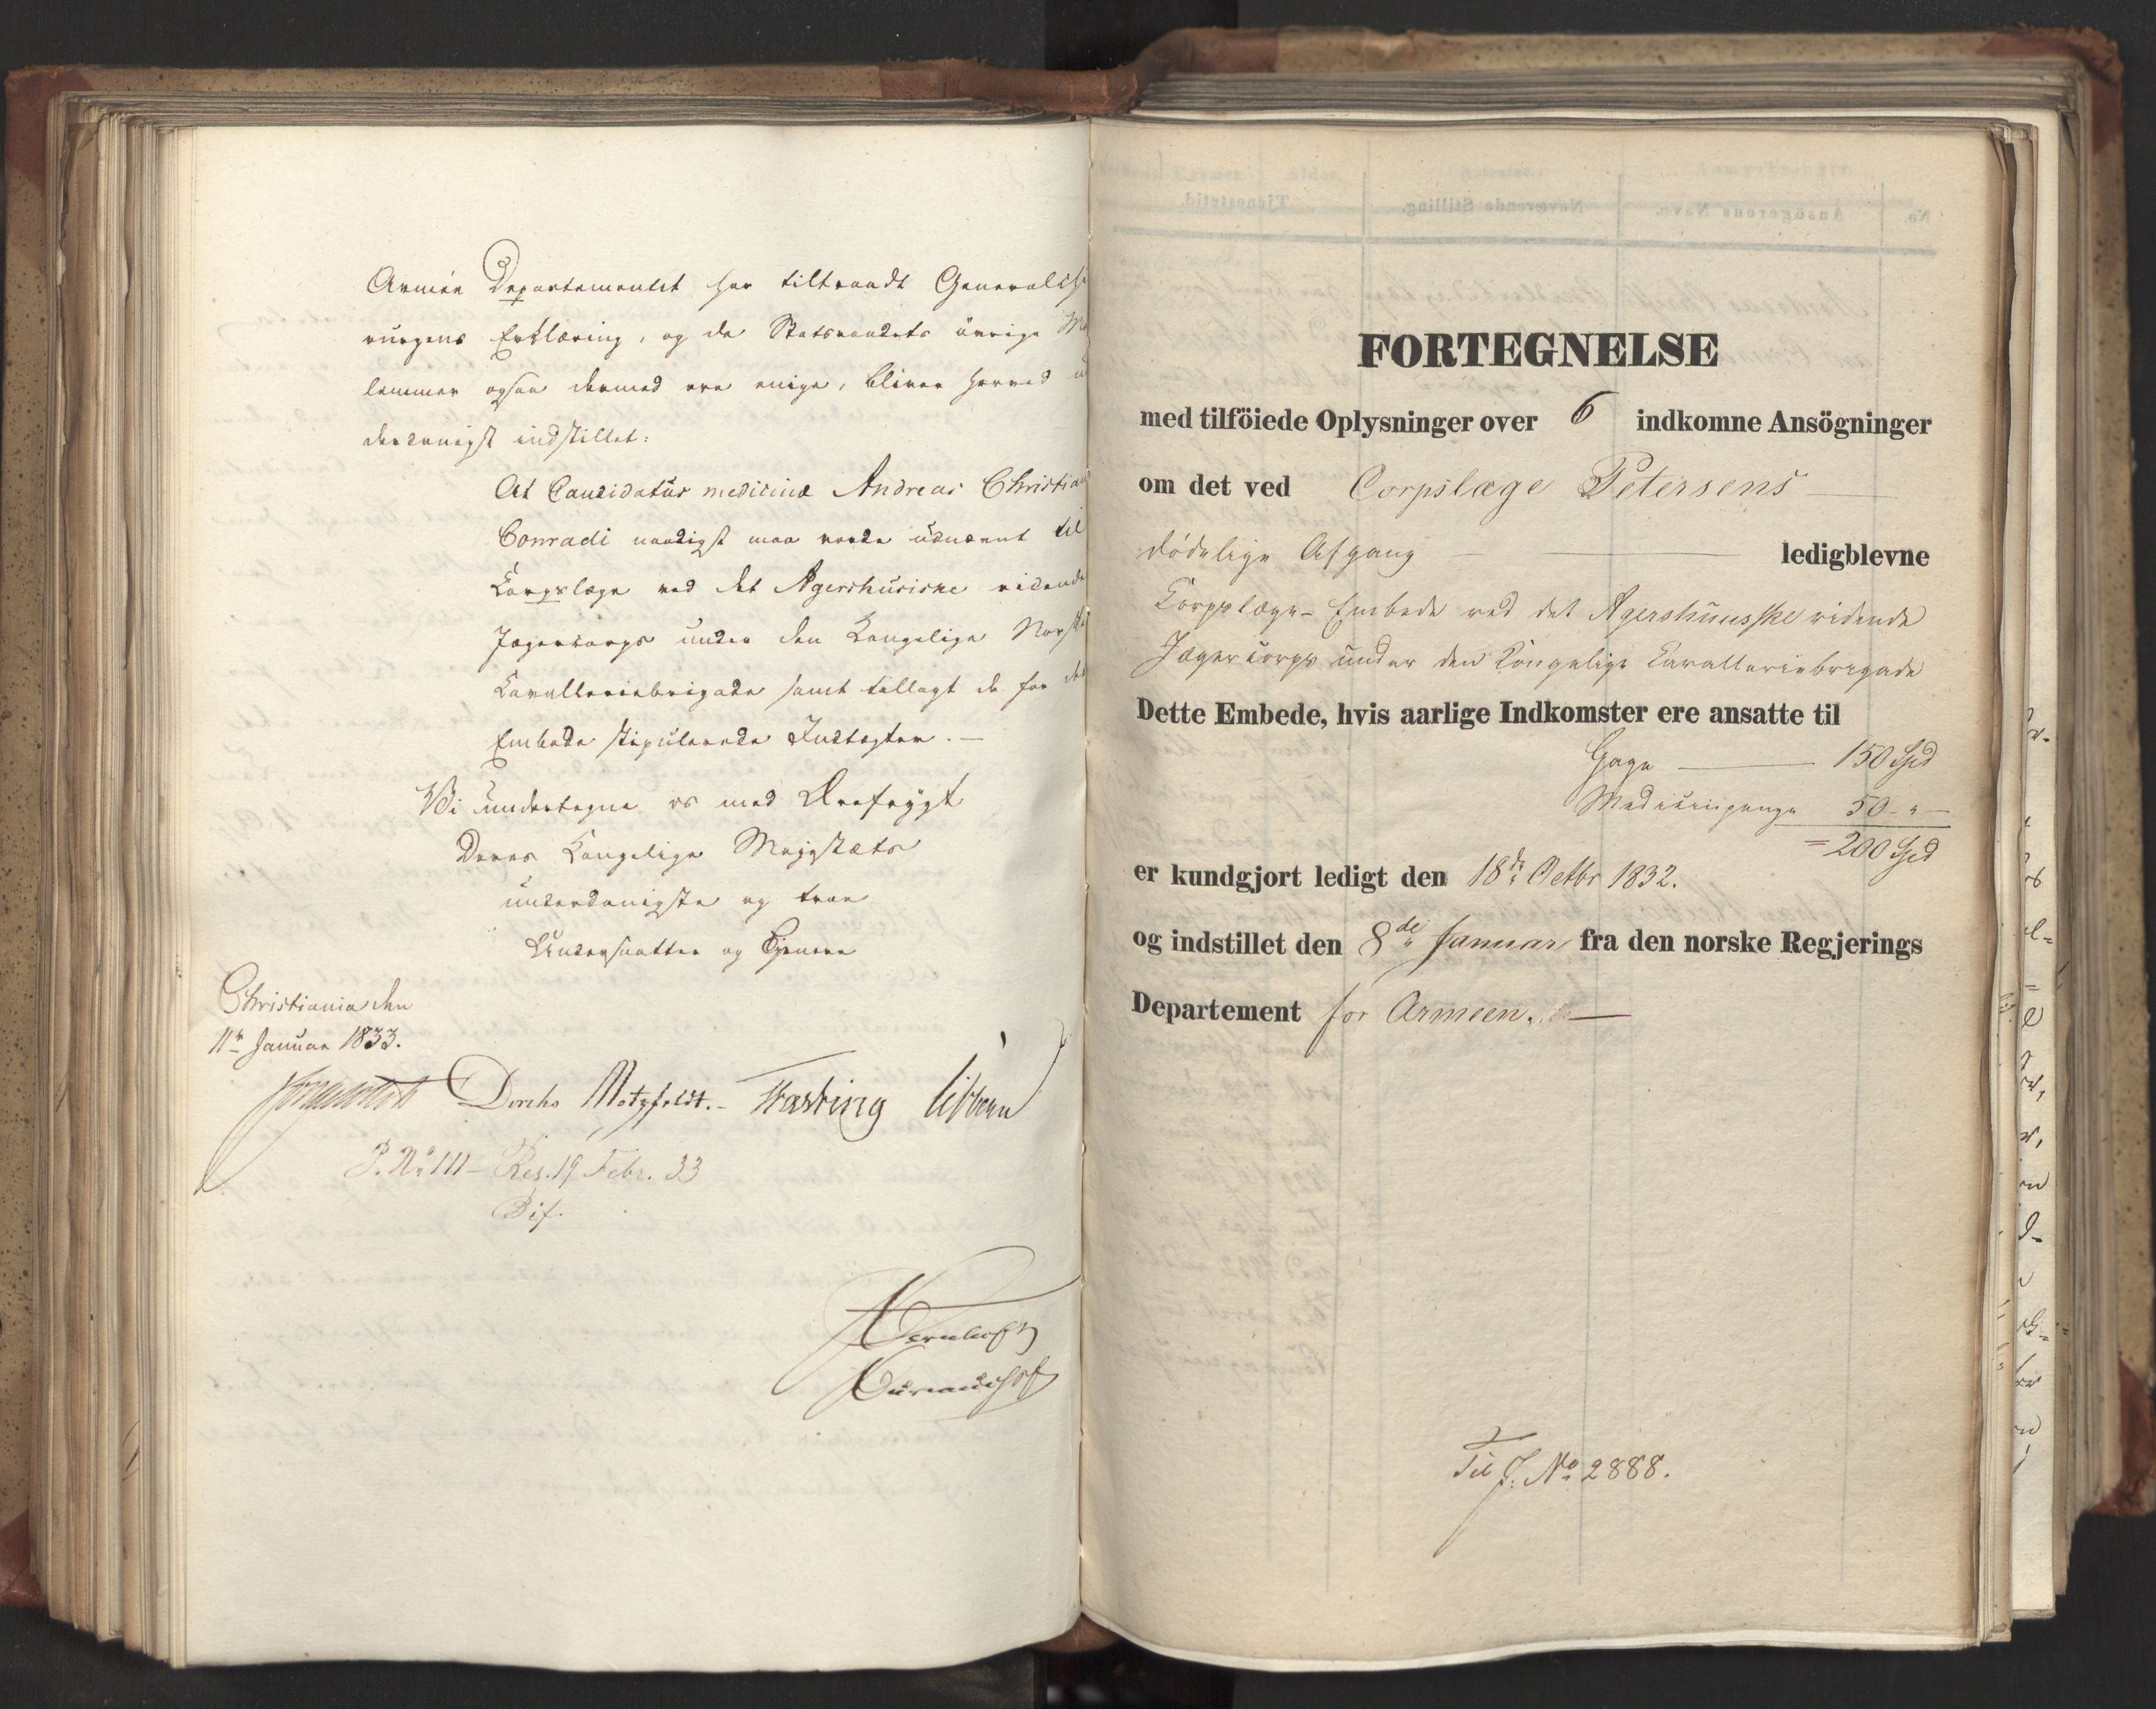 Armée Departementet har tiltraadt Generalch
rurgens Erklæring, og da Statsraadets øvrige Me
lemmer ogsaa dermed ere enige, bliver herved u
derdanigst indstillet:
At Candidatus medicinæ Andreas Christian
Conradi naadigst maa vorde udnævnt til
Korpslæge ved det Agershusiske ridende
Jægercorps under den Kongelige Norske
Kavalleriebrigade samt tillagt de for det
Embede stipulerede Indtægter. —
Vi undertegne os med Ærefrygt
Deres Kongelige Majestæts
underdanigste og troe
Undersaatter og Tjenere
Christiania den
11te Januar 1833.
Diriks Motzfeldt. Fasting Sibbern
P. No 111 - Res. 19 Febr. 33
Bif.
FORTEGNELSE
med tilföiede Oplysninger over 6 indkomne Ansögninger
om det ved Corpslæge Petersens —
dødelige Afgang — — ledigblevne
Corpslæge-Embede ved det Agershuusske ridende
Jægercorps under den Kongelige Cavalleriebrigade
Dette Embede, hvis aarlige Indkomster ere ansatte til
Gage — 150 Spd
Medicinpenge 50 - " -
= 200 Spd
er kundgjort ledigt den 18de Octbr 1832.
og indstillet den 8de Januar fra den norske Regjerings
Departement for Armeen. —
Til J. No 2888.